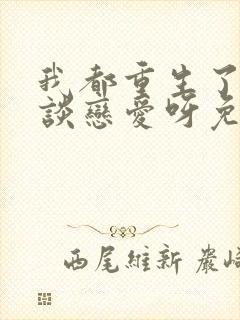 我都重生了
談戀愛呀免
西尾維新 嚴崎